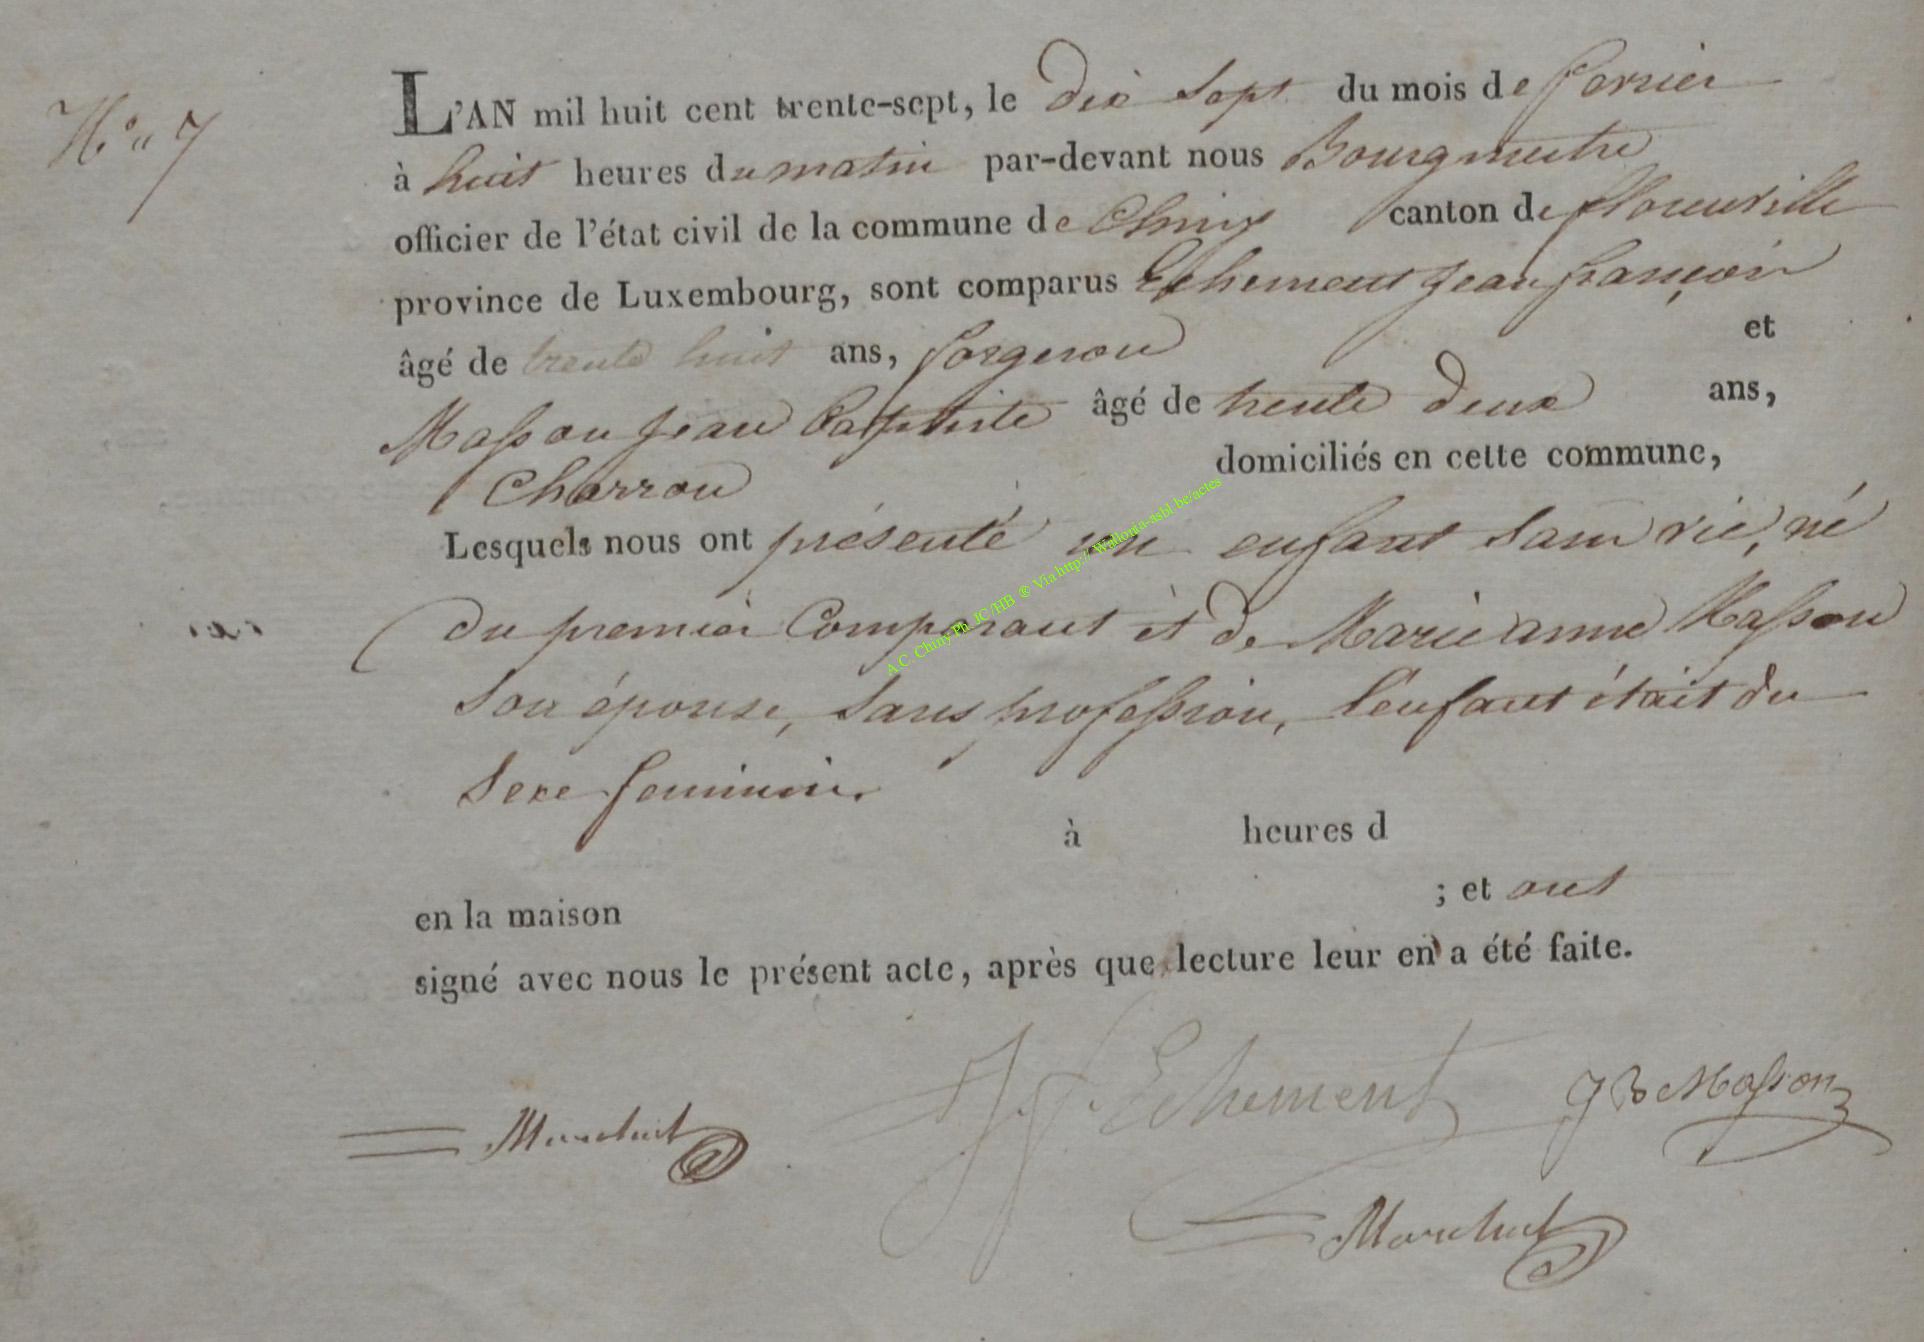 N.° 7
L'AN mil huit cent trente-sept, le dix sept du mois de fevrier
à huit heures du matin par-devant nous Bourgmestre
officier de l'état civil de la commune de Chiny canton de florenville
province de Luxembourg, sont comparus Echement Jean françois
âgé de trente huit ans, forgeron et
Masson Jean Baptiste âgé de trente deux ans,
Charron domiciliés en cette commune,
Lesquels nous ont présenté un enfant sans vie, né
du premier Comparant et de Marie anne Masson
son épouse, sans profession, l'enfant était du
sexe feminin.
à heures d
en la maison ; et ont
signé avec nous le présent acte, après que lecture leur en a été faite.
J. f. Echement
J B Masson
A.C. Chiny Ph. JC/HB ® Via http://Wallonia-asbl.be/actes